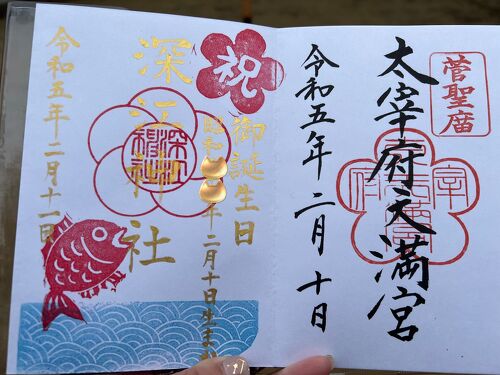 菅聖廟
太宰府天満宮
令和五年二月十日
祝
御誕生日
昭和
年二月十日生まれ
深江神社
深江神社
令和五年二月十一日